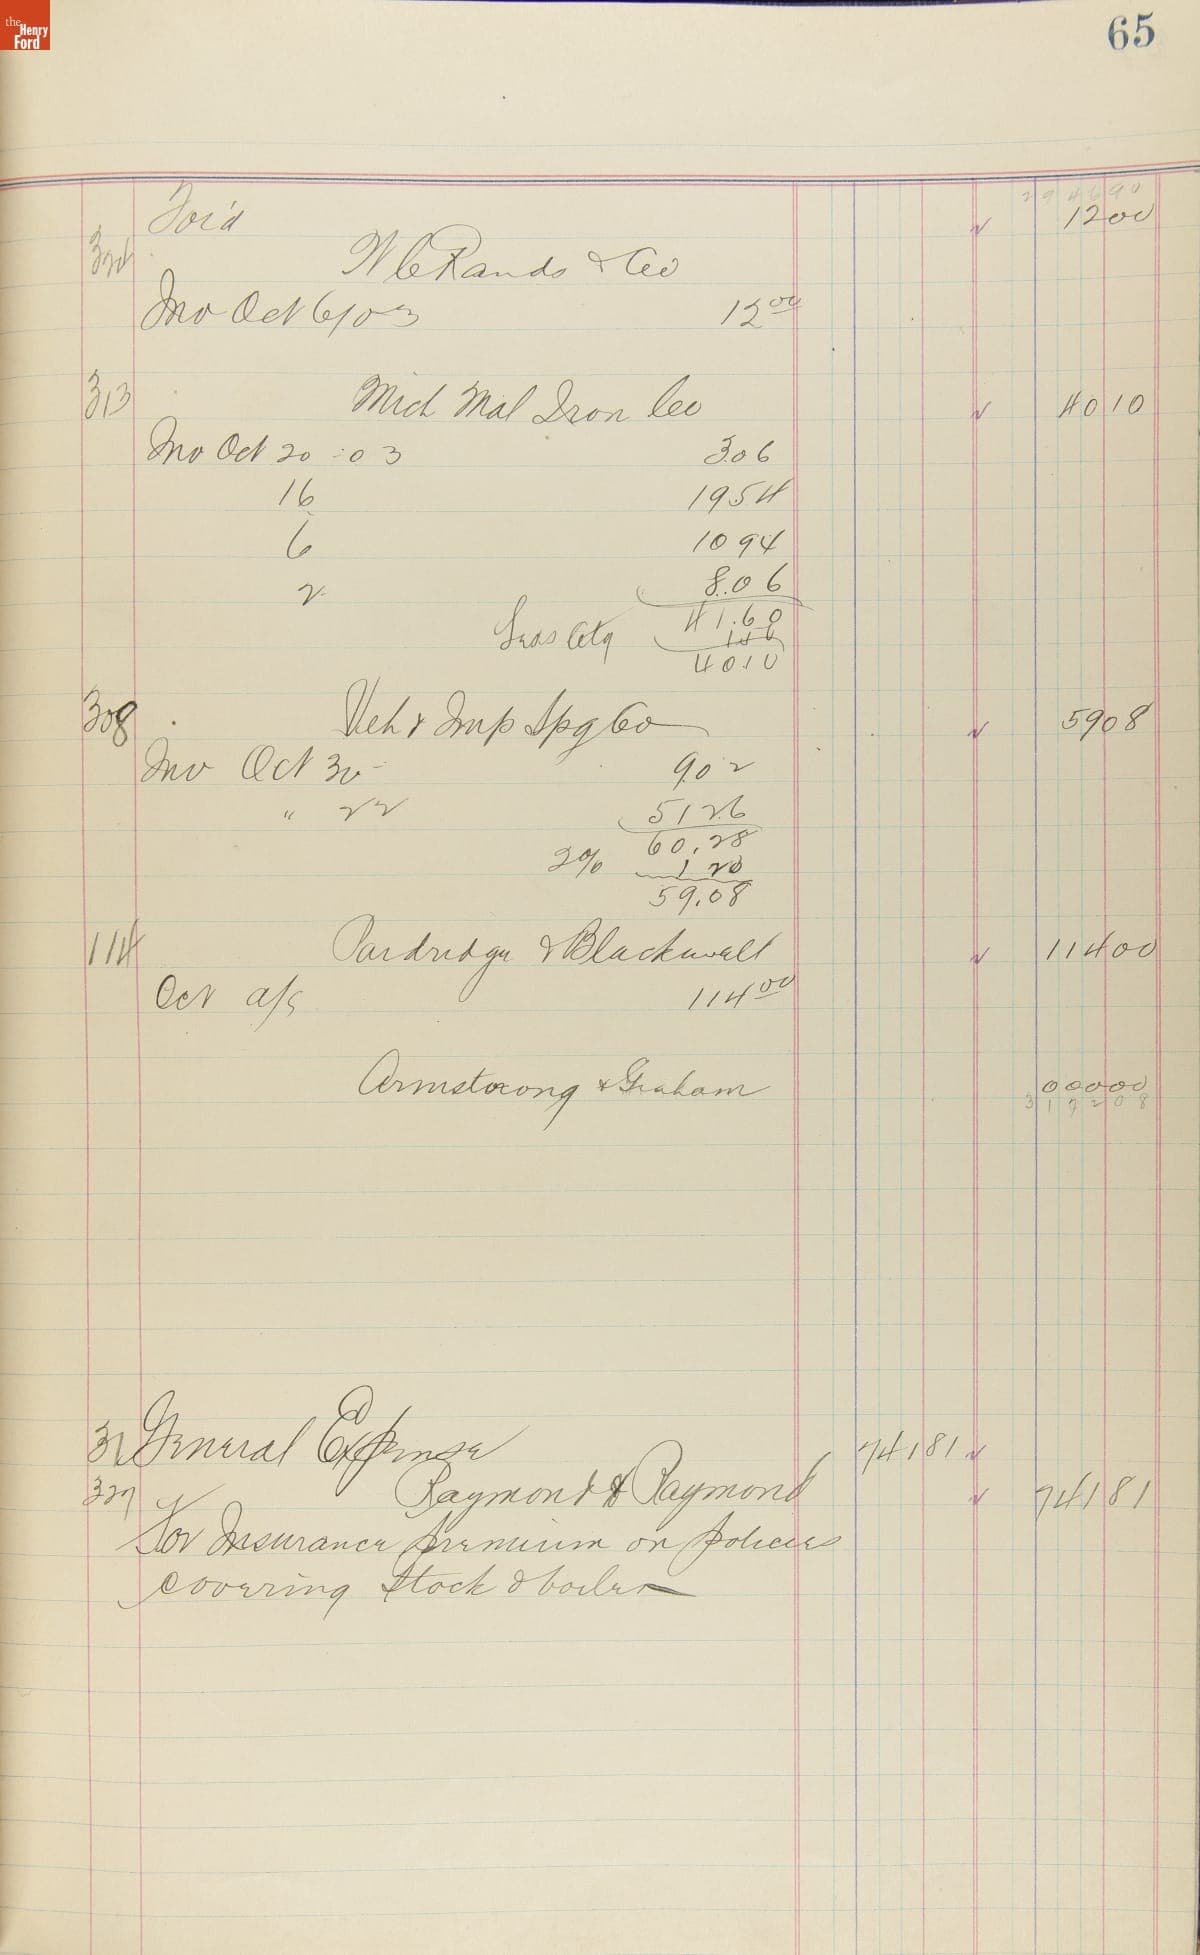 the Henry Ford
65
294690
For'd 1200
W C Rands & Co
Inv Oct 6/03 12 00
313 Mich Mal Iron Co 4010
Inv Oct 20 - 03 3.06
16 1954
6 1094
2 8.06
41.60
1 40010
308 Veh & Imp Spg Co 5908
Inv Oct 30 - 9.02
" 22 5126
60.28
2% 1 20
59.08
114 Pardridge & Blackwell 11400
Oct a/c 114 00
Armstrong & Graham 00000
317208
General Expense 74181
327 Raymond & Raymond 74181
For Insurance premium on policies
covering stock & boiler